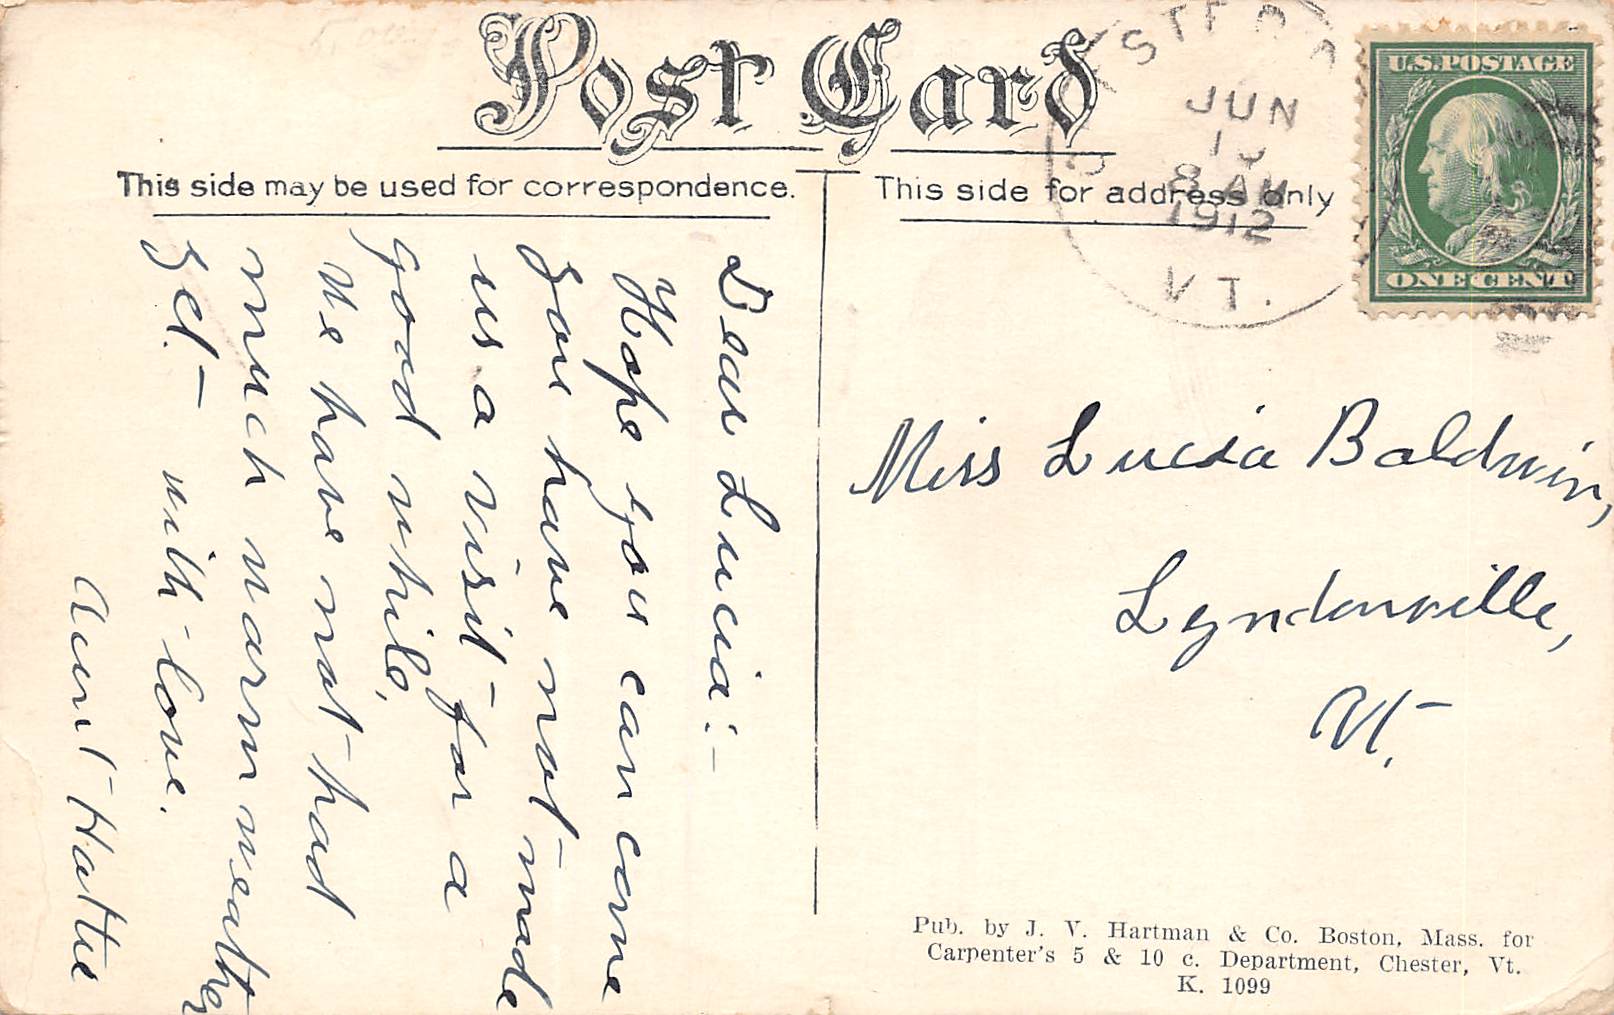 Post Card
This side may be used for correspondence.
This side for address only
JUN
8 AM
1912
VT.
U.S. POSTAGE
ONE CENT
Dear Lucia:-
Hope you can come
you have not made
us a visit for a
good while,
We have not had
much warm weather
yet. - with love.
Aunt Hattie
Miss Lucia Baldwin,
Lyndonville,
Vt.
Pub. by J. V. Hartman & Co. Boston, Mass. for
Carpenter's 5 & 10 c. Department, Chester, Vt.
K. 1099